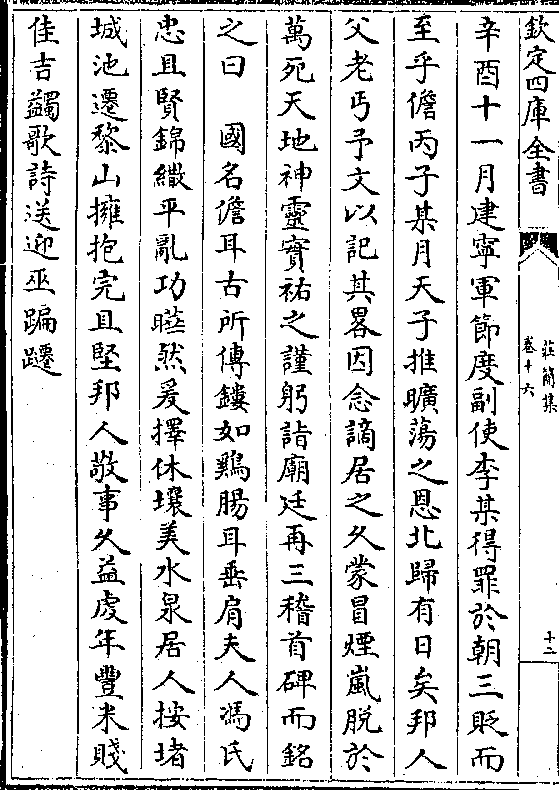 欽定四庫全書
莊簡集
卷十六
十二
辛酉十一月建寧軍節度副使李某得罪於朝三貶而
至乎儋丙子某月天子推曠蕩之恩北歸有日矣邦人
父老丐予文以記其畧因念謫居之久蒙冒煙嵐脱於
萬死天地神靈實祐之謹躬詣廟廷再三稽首碑而銘
之曰　國名儋耳古所傳鏤如鷄腸耳垂肩夫人馮氏
忠且賢錦繖平亂功瞱然爰擇休壤美水泉居人按堵
城池遷黎山擁抱完且堅邦人敬事久益虔年豐米賤
佳吉蠲歌詩送迎巫蹁躚